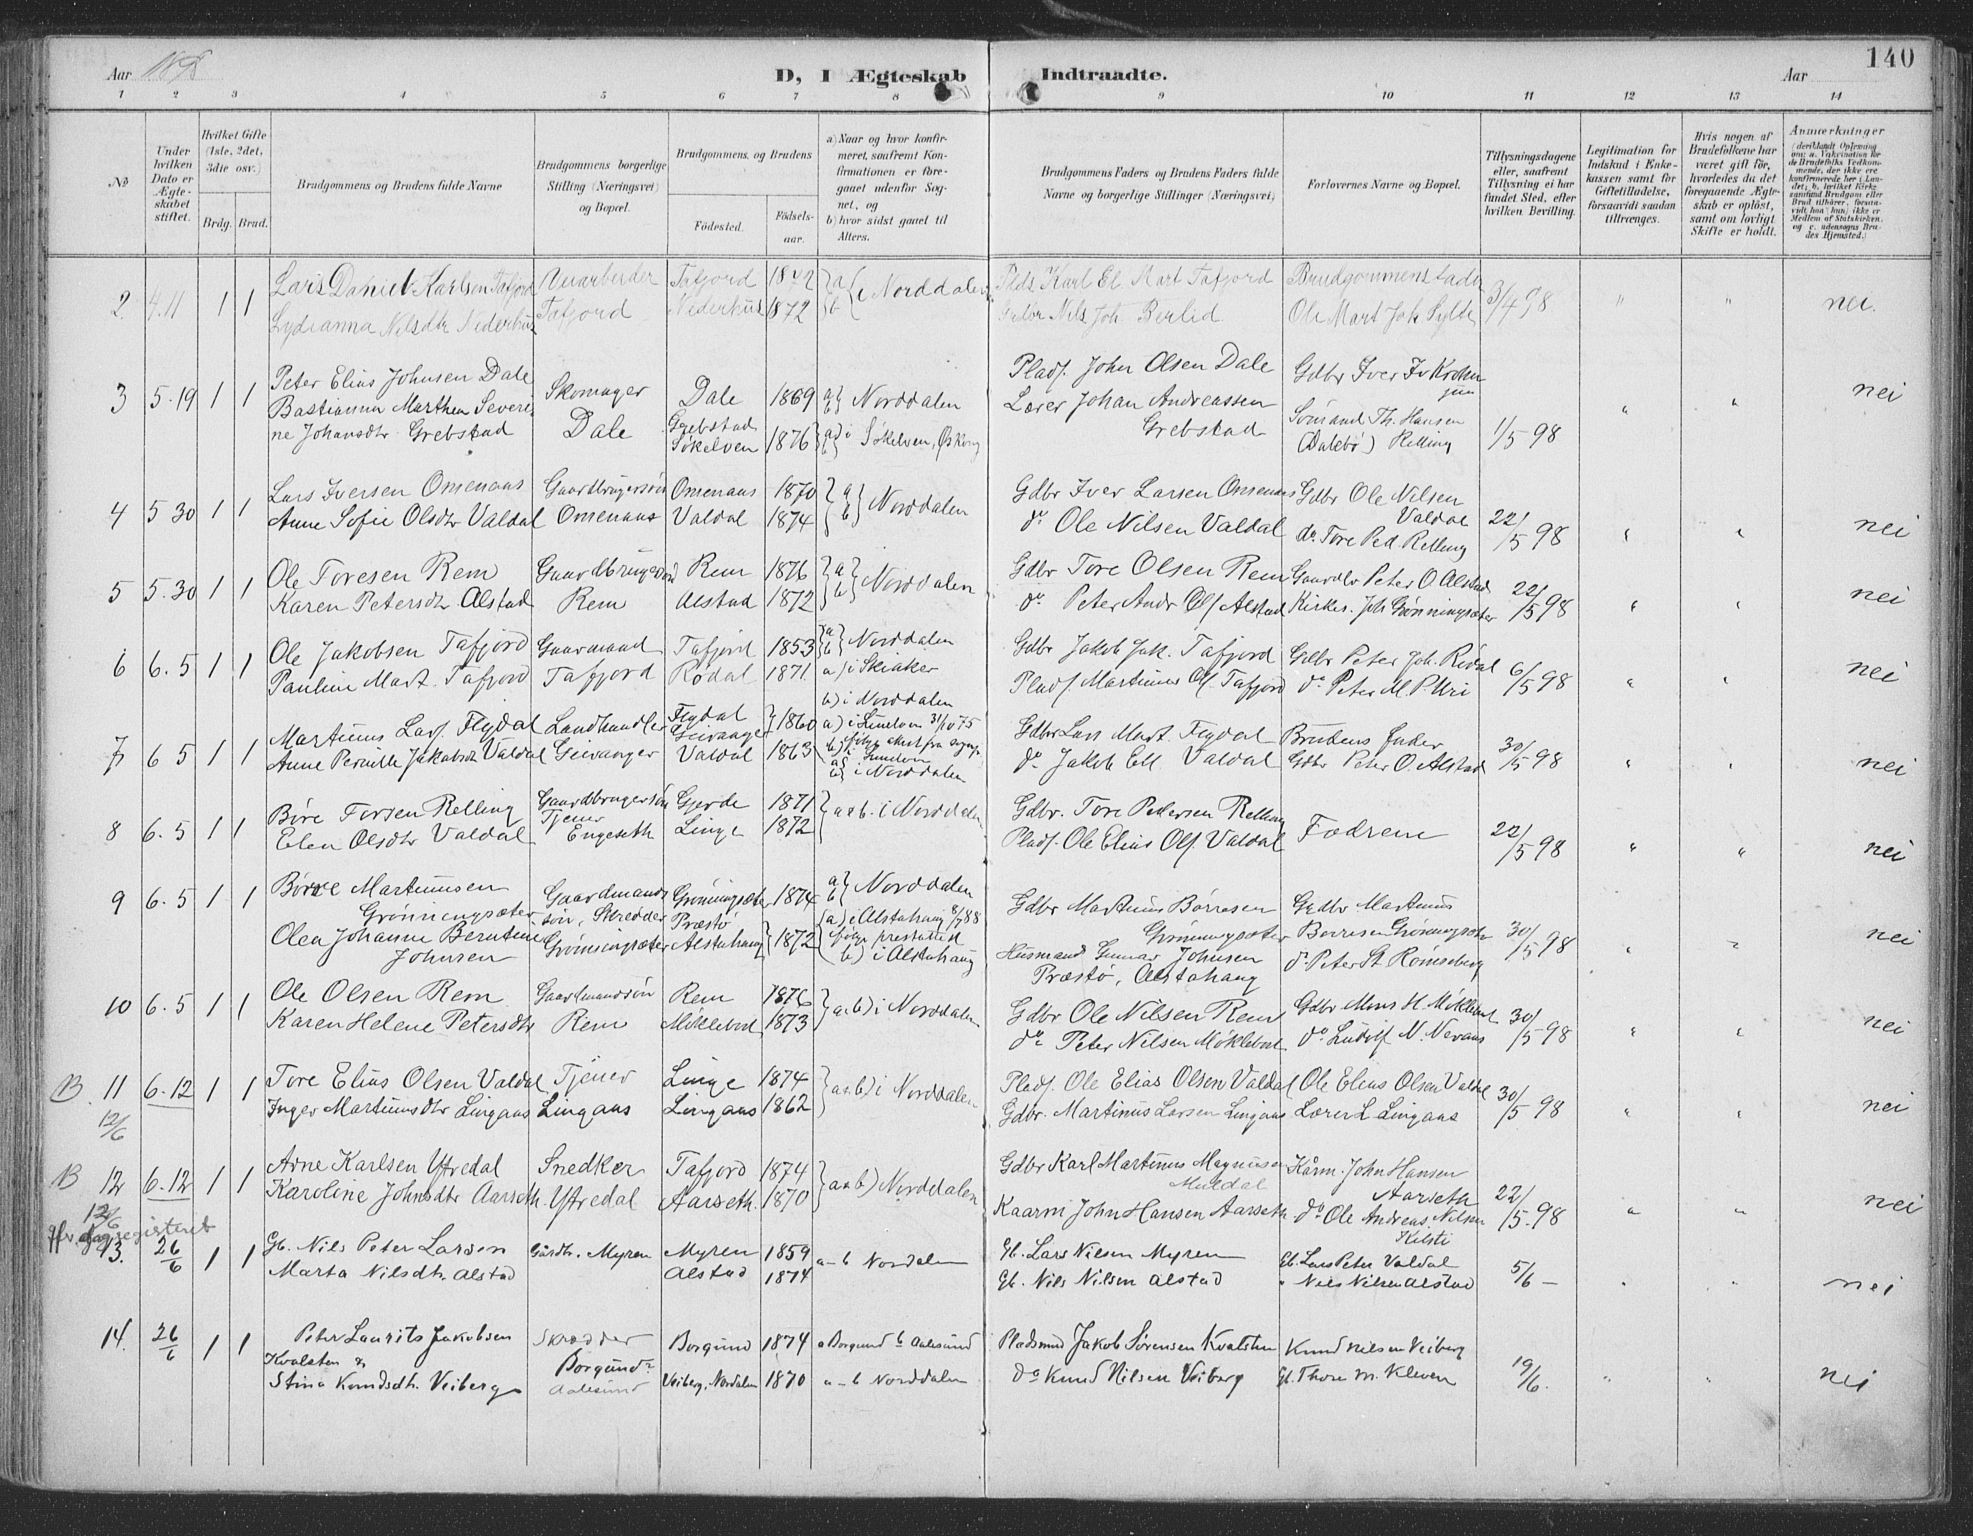 140
Aar 1898 D, I Ægteskab Indtraadte. Aar
1 2 3 4 5 6 7 8 9 10 11 12 13 14
No
Under hvilken Dato er Ægteskabet stiftet.
Hvilket Gifte (1ste, 2det, 3die osv.)
Brdg. Brud.
Brudgommens og Brudens fulde Navne
Brudgommens borgerlige Stilling (Næringsvei) og Bopæl.
Brudgommens og Brudens
Fødested. Fødselsaar.
a) Naar og hvor konfirmeret, saafremt Konfirmationen er foregaaet udenfor Sognet, og
b) hvor sidst gaaet til Alters.
Brudgommens Faders og Brudens Faders fulde Navne og borgerlige Stillinger (Næringsvei).
Forlovernes Navne og Bopæl.
Tillysningsdagene eller, saafremt Tillysning ei har fundet Sted, efter hvilken Bevilling.
Legitimation for Indskud i Enkekassen samt for Giftetilladelse, forsaavidt saadan tiltrænges.
Hvis nogen af Brudefolkene har været gift før, hvorledes da det foregaaende Ægteskab er opløst, samt om lovligt Skifte er holdt.
Anmærkninger
2 4.11 1 1 Lars Daniel Karlsen Tafjord Tafjord 1872 a Plds Karl El. Mart Tafjord Brudgommens fader
Lydianna Nilsdtr Nederhus Tafjord Nederhus 1872 b i Norddalen Gdbr Nils Joh. Berlid Ole Mart Joh. Sylte 3/4 98 " " nei.
3 5.19 1 1 Peter Elias Johnsen Dale Skomager Dale 1869 a b Norddalen Pladf. John Olsen Dale Gdbr Iver Iv Krohn jun
Bastianna Marthea Severine Johansdtr Grebstad Dale Grebstad Søkelven 1876 a b i Søkelven, Ørskoug Lærer Johan Andreassen Grebstad Th. Hansen (Dalebø) Relling 1/5 98 " " nei
4 5 30 1 1 Lars Iversen Omenaas Gaardbrugersøn Omenaas 1870 a Gdbr Iver Larsen Omenaas Gdbr Ole Nilsen Valdal
Anne Sofie Olsdtr Valdal Omenaas Valdal 1874 b Norddalen do Ole Nilsen Valdal do Tore Ped. Relling 22/5 98 " " nei
5 5.30 1 1 Ole Toresen Rem Gaardbrugersøn Rem 1876 a Gdbr Tore Olsen Rem Gaardbr Peter O. Alstad
Karen Petersdtr Alstad Rem Alstad 1872 b Norddalen do Peter Andr Ols Alstad Kirkes. Joh Grønningsæter 22/5 98 " " nei
6 6.5 1 1 Ole Jakobsen Tafjord Gaardmand Tafjord 1853 a b Norddalen Gdbr Jakob Jak. Tafjord Gdbr Peter Joh. Rødal
Pauline Mart. Tafjord Tafjord Rødal 1871 a) i Skiaker b) i Norddalen Pladf. Martinus Ol. Tafjord do Peter M. P. Uri 6/5 98 " " nei
7 6 5 1 1 Martinus Lars. Flydal Landhandler Flydal Geiranger 1860 a) i Sunelven 31/10 75 Gdbr Lars Mart. Flydal Brudens fader
Anne Pernille Jakobsdtr Valdal Geiranger Valdal 1863 b) i Norddalen do Jakob Ell Valdal Gdbr Peter O. Alstad 30/5 98 " " nei
8 6.5 1 1 Børe Torsen Relling Gaardbrugersøn Gjerde 1871 Gdbr. Tore Pedersen Relling Fædrene
Elen Olsdtr Valdal Tjener Engeseth Linge 1872 a & b. i Norddalen Pladf. Ole Elias Ols. Valdal 22/5 98 " " nei
9 6.5 1 1 Børre Martinusen Grønningsæter Gaardmandssøn, Skredder Grønningsæter 1874 a b Norddalen Gdbr Martinus Børresen Grønningsæter Gdbr Martinus Børresen Grønningsæter
Olea Johanne Berntine Johnsen Grønningsæter Præstø Alstahaug 1872 a) i Alstahaug 8/7 88 b) i Alstahaug Husmand Gunnar Johnsen Præstø, Alstahaug do Peter St. Rømseberg 30/5 98 " " nei
10 6.5 1 1 Ole Olsen Rem Gaardmandssøn Rem 1876 Gdbr Ole Nilsen Rem Gdbr Mons H. Møklebost
Karen Helene Petersdtr Rem Møklebost 1873 a & b) i Norddalen do Peter Nilsen Møklebost do Ludolf N. Veraas 30/5 98 " " nei
B 11 6.12 1 1 Tore Elias Olsen Valdal Tjener Linge 1874 Pladf. Ole Elias Olsen Valdal Ole Elias Olsen Valdal
12/6 Inger Martinusdtr Lingaas Lingaas Lingaas 1862 a & b) i Norddalen Gdbr. Martinus Larsen Lingaas Lærer L Lingaas 30/5 98 " " nei
B 12 6.12 1 1 Arne Karlsen Yttredal Snedker Tafjord 1874 Gdbr Karl Martinus Magnusen Muldal Kårm. John Hansen Aarseth
12/6 Karoline Johnsdtr Aarseth. Yttredal Aarseth. 1870 a & b) Norddalen Kaarm John Hansen Aarseth do Ole Andreas Nilsen Skilsti 22/5 98 " " nei
registeret
13. 26/6 1 1 Gb. Nils Peter Larsen Gårdbr. Myren Myren 1859 a-b Nordalen Gb. Lars Nilsen Myren Gb. Lars Peter Valdal
Marta Nilsdtr. Alstad Alstad 1874 Gb. Nils Nilsen Alstad " Nils Nilsen Alstad 5/6 – " " nei
14. 26/6 1 1 Peter Laurits Jakobsen Kvalsten & Skrædder Borgund Aalesund Borgund 1874 a Borgund b Aalesund Pladsmd Jakob Sørensen Kvalsten Knud Nilsen Veiberg
Stina Knudsdtr. Veiberg Veiberg, Nordalen 1870 a-b Norddalen do Knud Nilsen Veiberg Gb. Thore M. Kleven 19/6. " " nei